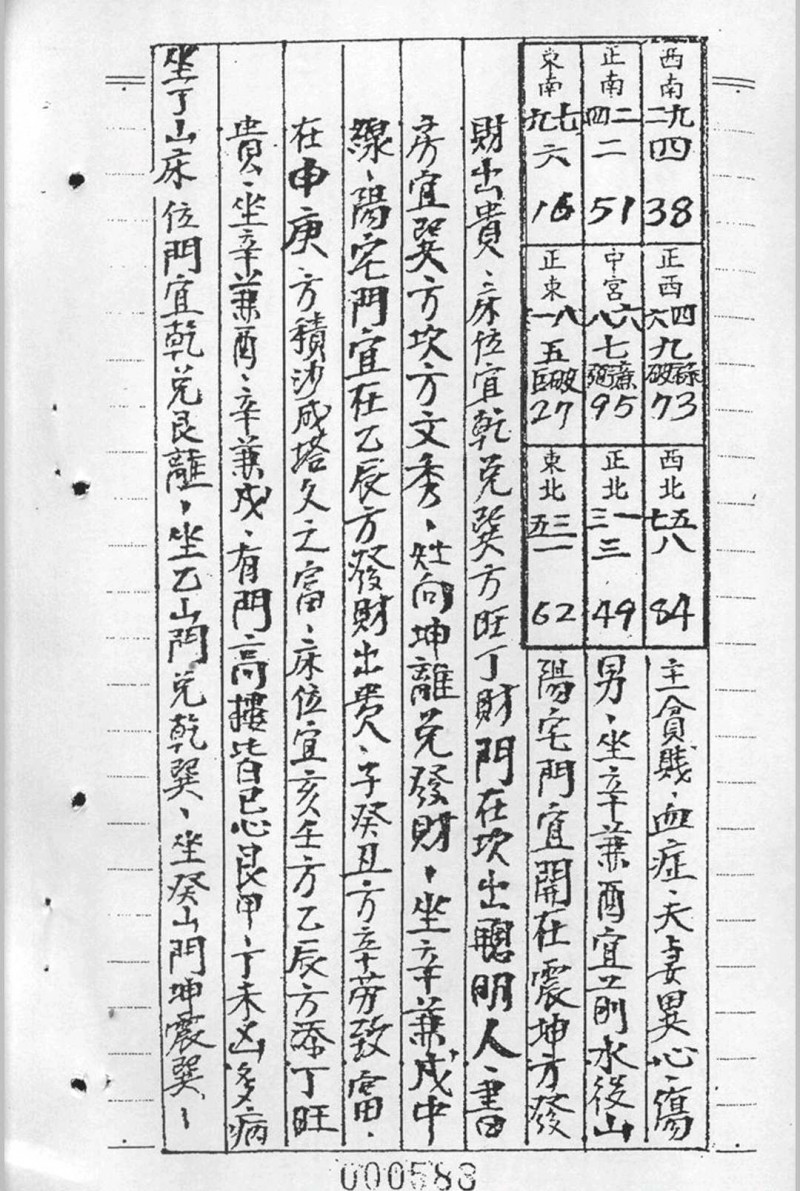 西南
二九
四
38
正西
六四
九
破祿
73
西北
七五
八
84
正南
四二
二
51
中宮
八六
七
弼廉
95
正北
三一
三
49
東南
九七
六
16
正東
一八
五
巨破
27
東北
五三
一
62
主貧賤、血症、夫妻異心、傷
男、坐辛兼酉宜前水後山
陽宅門宜開在震坤方發
財出貴、床位宜乾兌巽方旺丁財門在坎出聰明人、書
房宜巽方坎方文秀、灶向坤離兌發財、坐辛兼戌中
線、陽宅門宜在乙辰方發財出貴、子癸丑方辛勞致富、
在申庚方積沙成塔久之富、床位宜亥壬方乙辰方添丁旺
貴、坐辛兼酉、辛兼戌、有門高樓皆已心艮甲丁未凶多病
坐丁山床位門宜乾兌艮離、坐乙山門兌乾巽、坐癸山門坤震巽、
000583